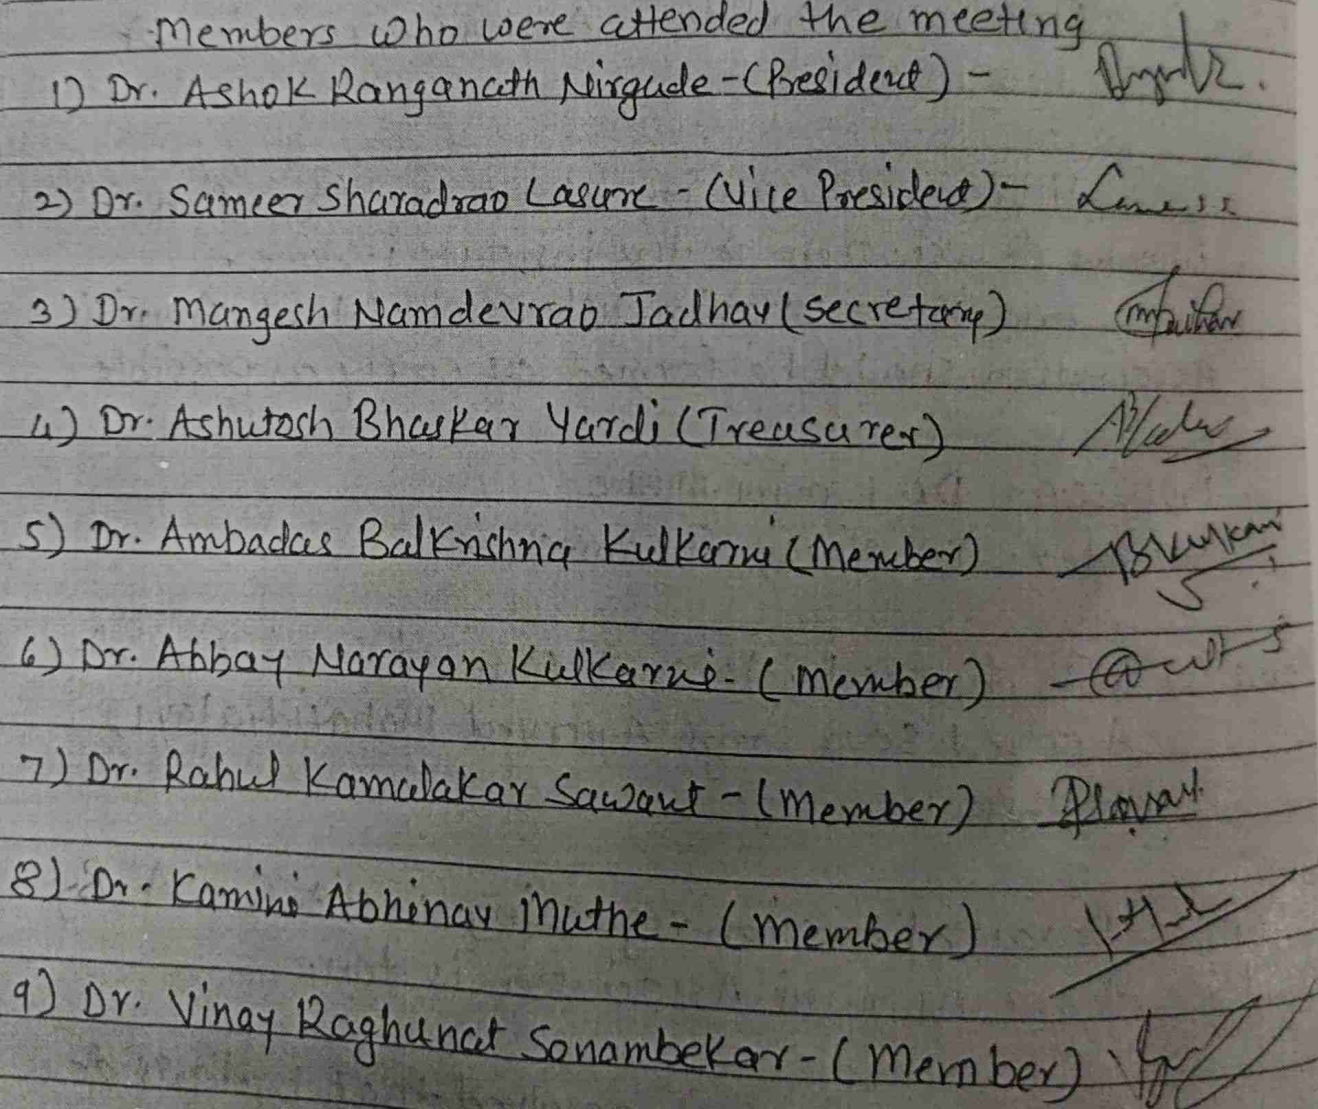 Members who were attended the meeting
1) Dr. Ashok Ranganath Nirgude - (President) -
2) Dr. Sameer Sharadrao Lasure - (Vice President) -
3) Dr. Mangesh Namdevrao Jadhav (Secretary)
4) Dr. Ashutosh Bhaskar Yardi (Treasurer)
5) Dr. Ambadas Balkrishna Kulkarni (Member)
6) Dr. Abhay Narayan Kulkarni - (Member)
7) Dr. Rahul Kamalakar Sawant - (Member)
8) Dr. Kamini Abhinav Muthe - (Member)
9) Dr. Vinay Raghunat Sonambekar - (Member)